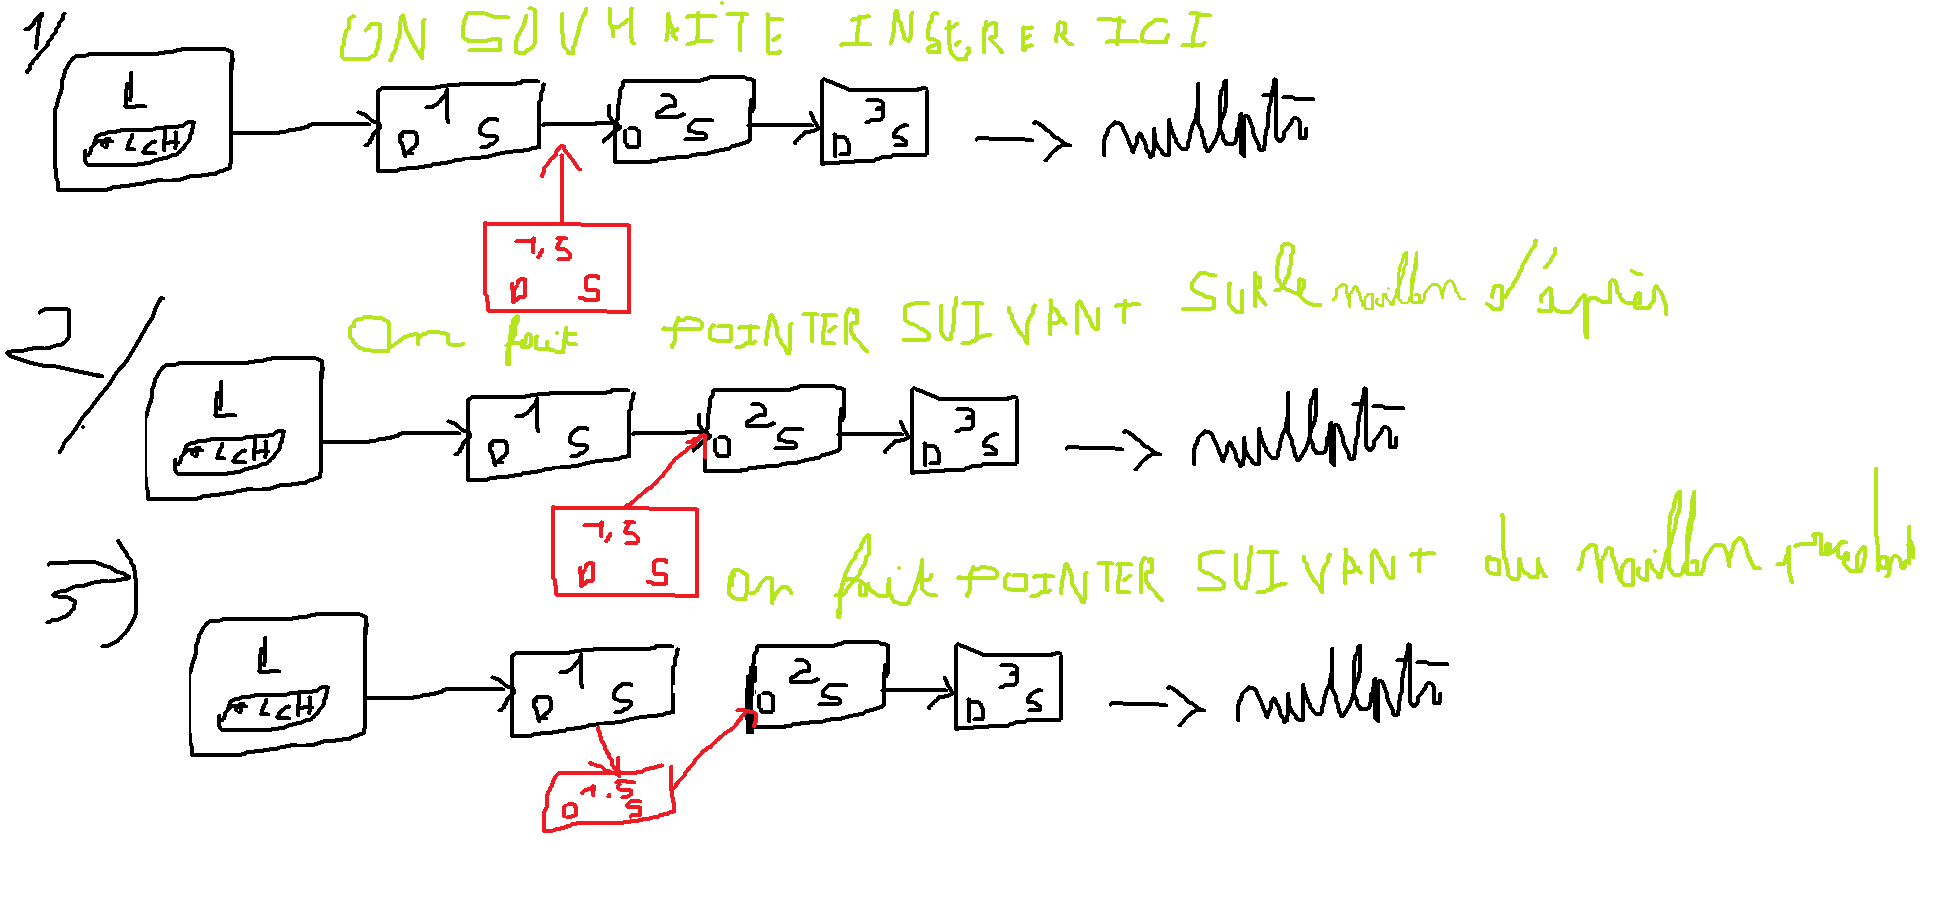 1/ ON SOUHAITE INSÉRER ICI
L
* LCH
D 1 S
D 2 S
D 3 S
nullptr
1,5
D S
2/ On fait POINTER SUIVANT SUR le maillon d'après
L
* LCH
D 1 S
D 2 S
D 3 S
nullptr
1,5
D S
3) on fait POINTER SUIVANT du maillon precedent
L
* LCH
D 1 S
D 2 S
D 3 S
nullptr
D 1.5 S